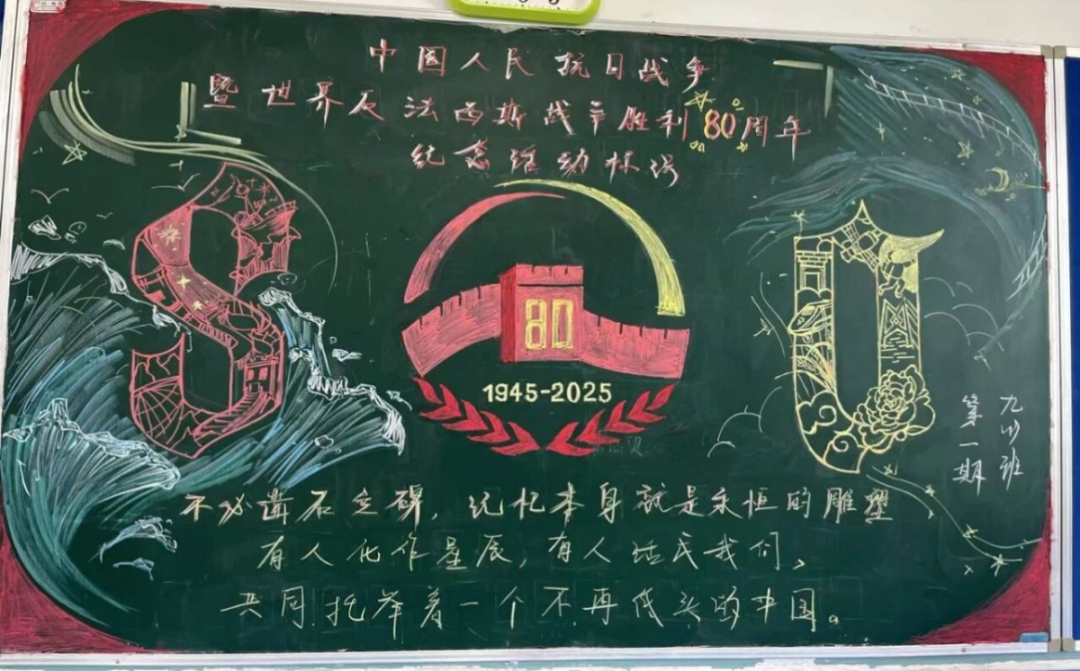 中国人民抗日战争
暨世界反法西斯战争胜利80周年
纪念活动怀诗
80
80
1945-2025
九(4)班
第一期
不必凿石立碑，纪忆本身就是永恒的雕塑
有人化作星辰，有人活成我们，
共同托举着一个不再低头的中国。